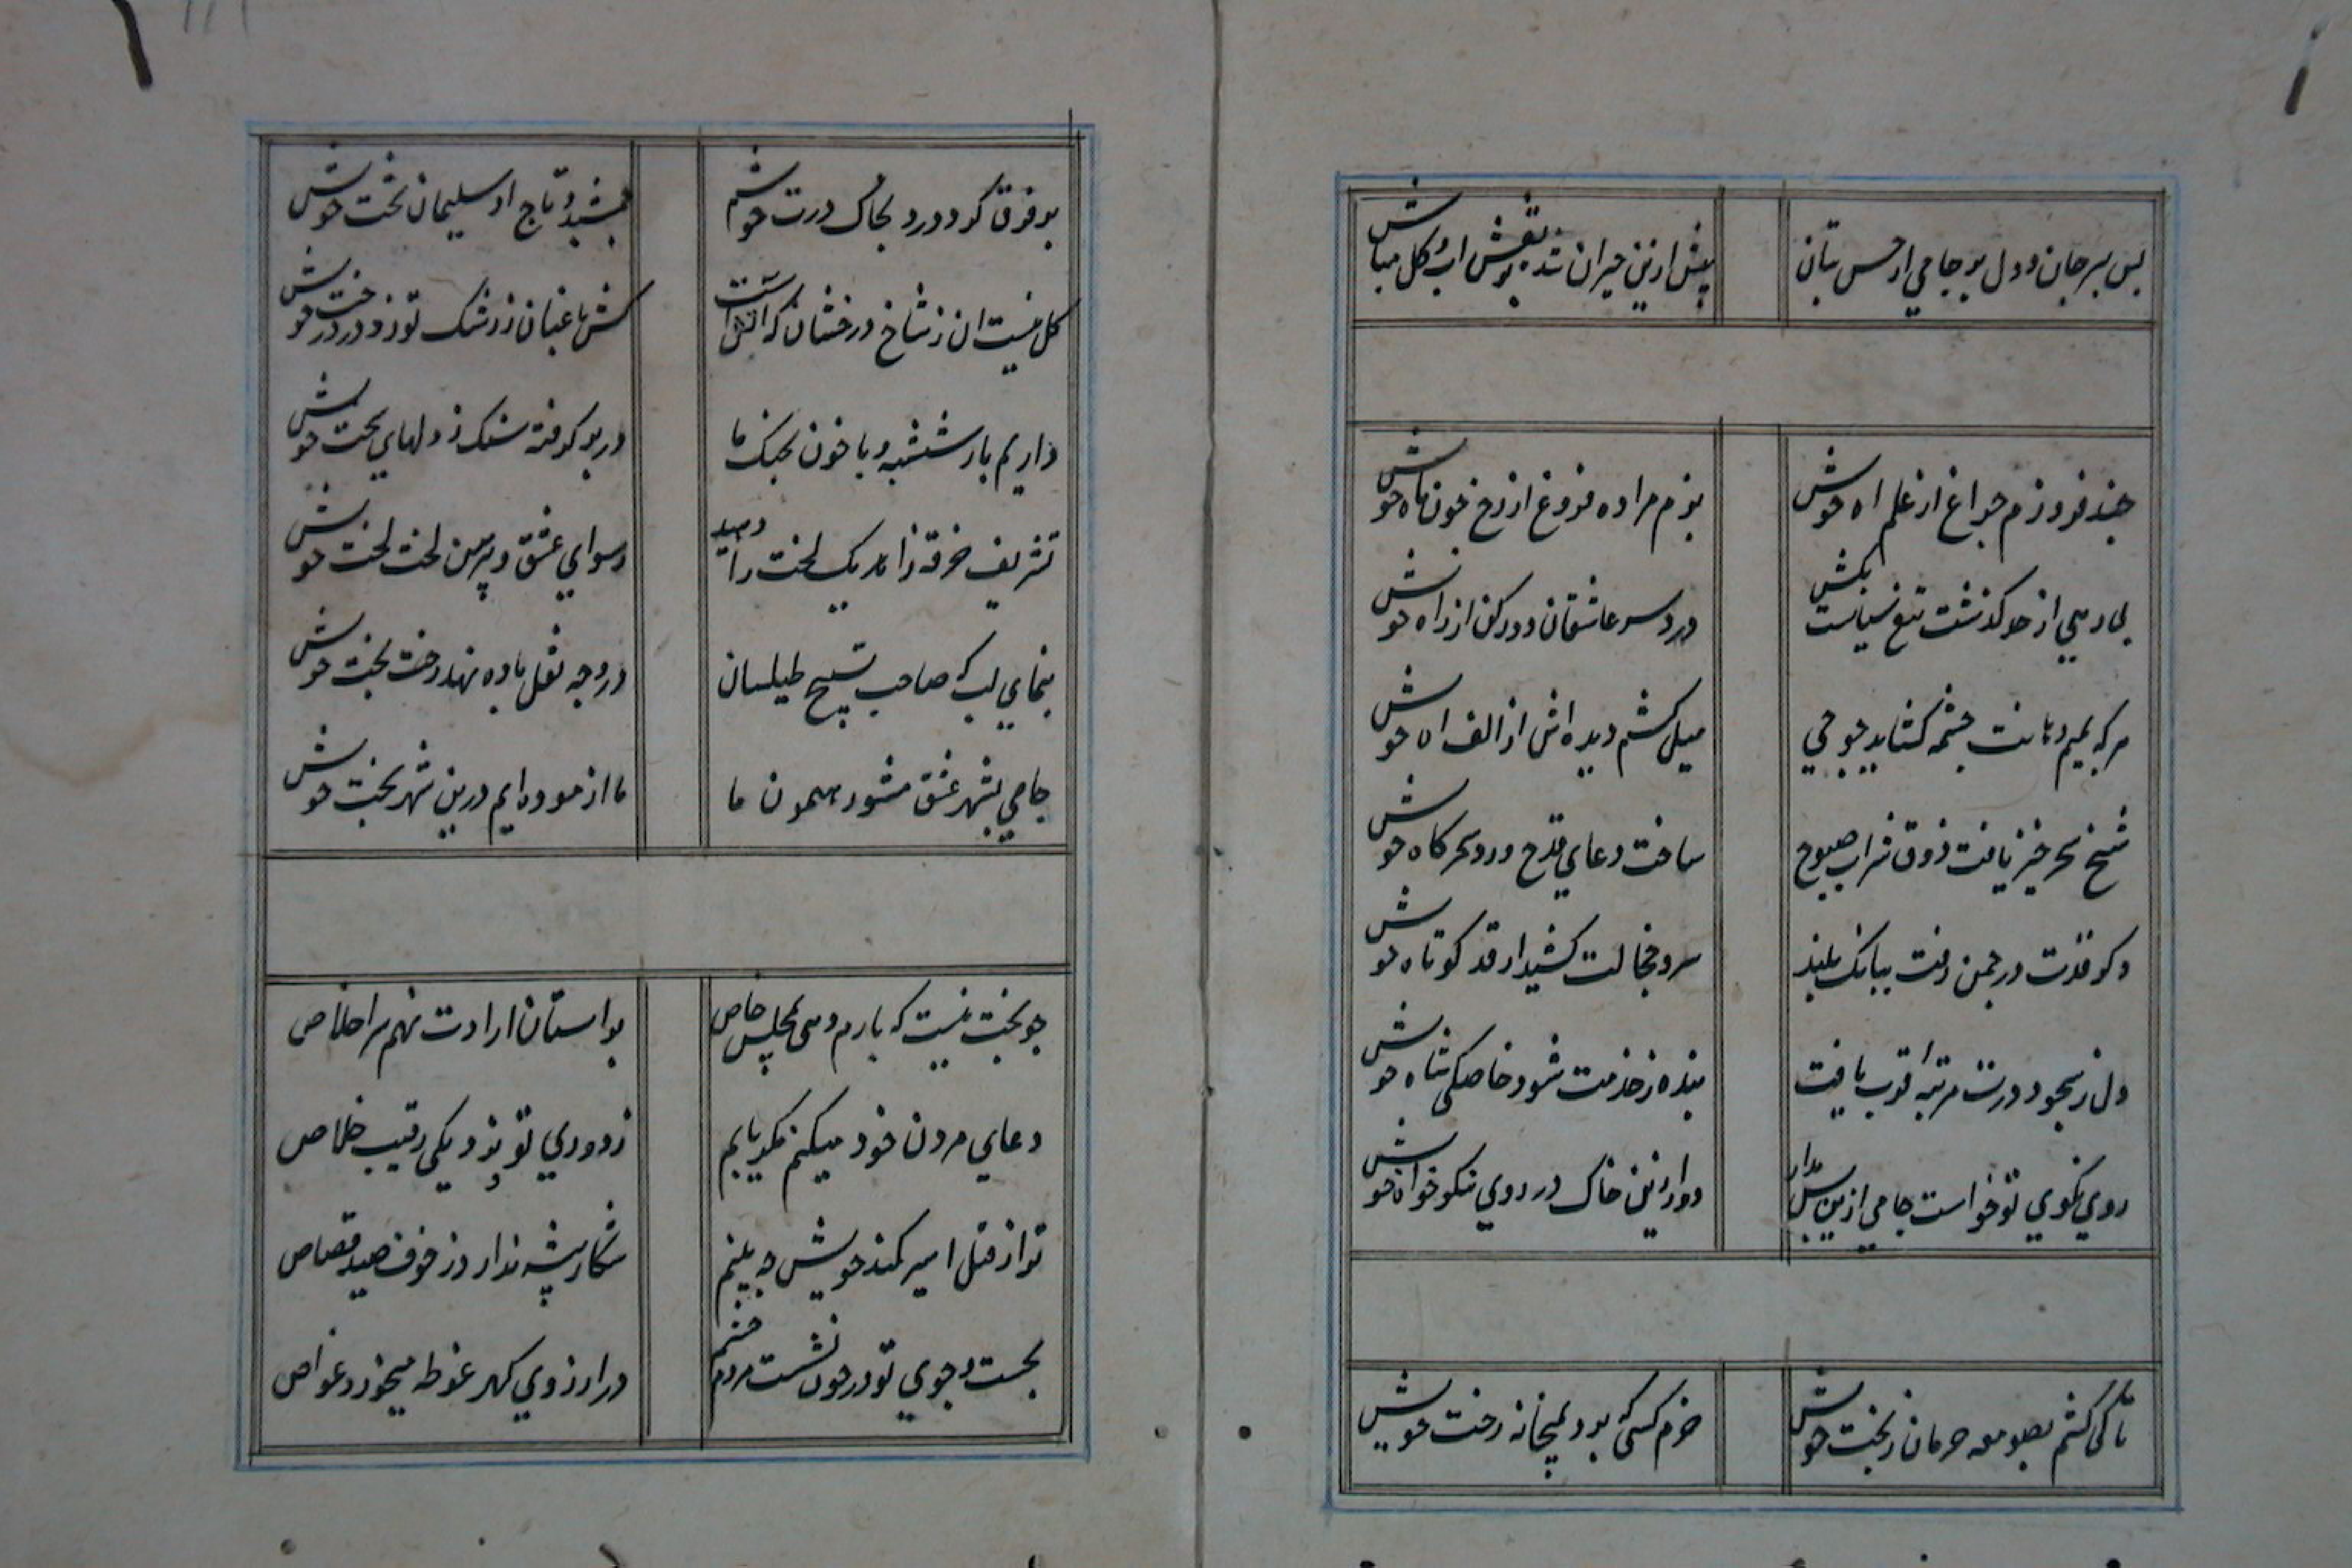 بس بپر جان و دل بر جامی از حسن بتان
پیش ازین حیران شده نقش اب و کل مباش
چند فروزم چراغ از علم اه خویش
بزم مرا ده فروغ از رخ چون ماه خویش
بی ادبی از حد کذشت تیغ سیاست بکش
درد سر عاشقان دور کن از راه خویش
هر که بمیم دهانت چشم کشاید چو جی
میل کشم دیده اش از الف اه خویش
شیخ سحر خیز یافت ذوق شراب صبوح
ساخت دعای قدح ورد سحرکاه خویش
ذکر قدت در چمن رفت ببانک بلند
سرو خجالت کشید از قد کوتاه خویش
دل ز سجود درت مرتبه قرب یافت
بنده ز خدمت شود خاصکی شاه خویش
روی نکوی تو خواست جامی ازین سان مدار
دور ازین خاک در روی نکو خواه خویش
تا کی کشم بصومعه حرمان ز بخت خویش
خرم کسی که برد بمیخانه رخت خویش
بر فرق کرد درد بخاک درت خوشم
جمشید و تاج او سلیمان تخت خویش
کل نیست ان ز شاخ درخشان که اتش است
کش باغبان ز رشک تو زد در درخت خویش
داریم بار شیشه و با خون بجنک ما
در بر کرفته سنک ز دلهای سخت خویش
تشریف خرقه زاهد یک لخت را دهید
رسوای عشق و پیرهن لخت لخت خویش
بنمای لب که صاحب تسبیح طیلسان
در وجه نقل باده نهد رخت بخت خویش
جامی بشهر عشق مشو رهنمون ما
ما ازموده ایم درین شهر بخت خویش
چو بخت نیست که بارم دهی بمجلس خاص
بر استان ارادت نهم سر اخلاص
دعای مردن خود میکنم مکر یابم
ز دوری تو و نزدیکی رقیب خلاص
تو از قتل اسیر کمند خویش چه بیم
شکار پیشه ندارد ز خوف صید قصاص
بجست و جوی تو در خون نشست مردم چشم
در ارزوی کهر غوطه میخورد غواص